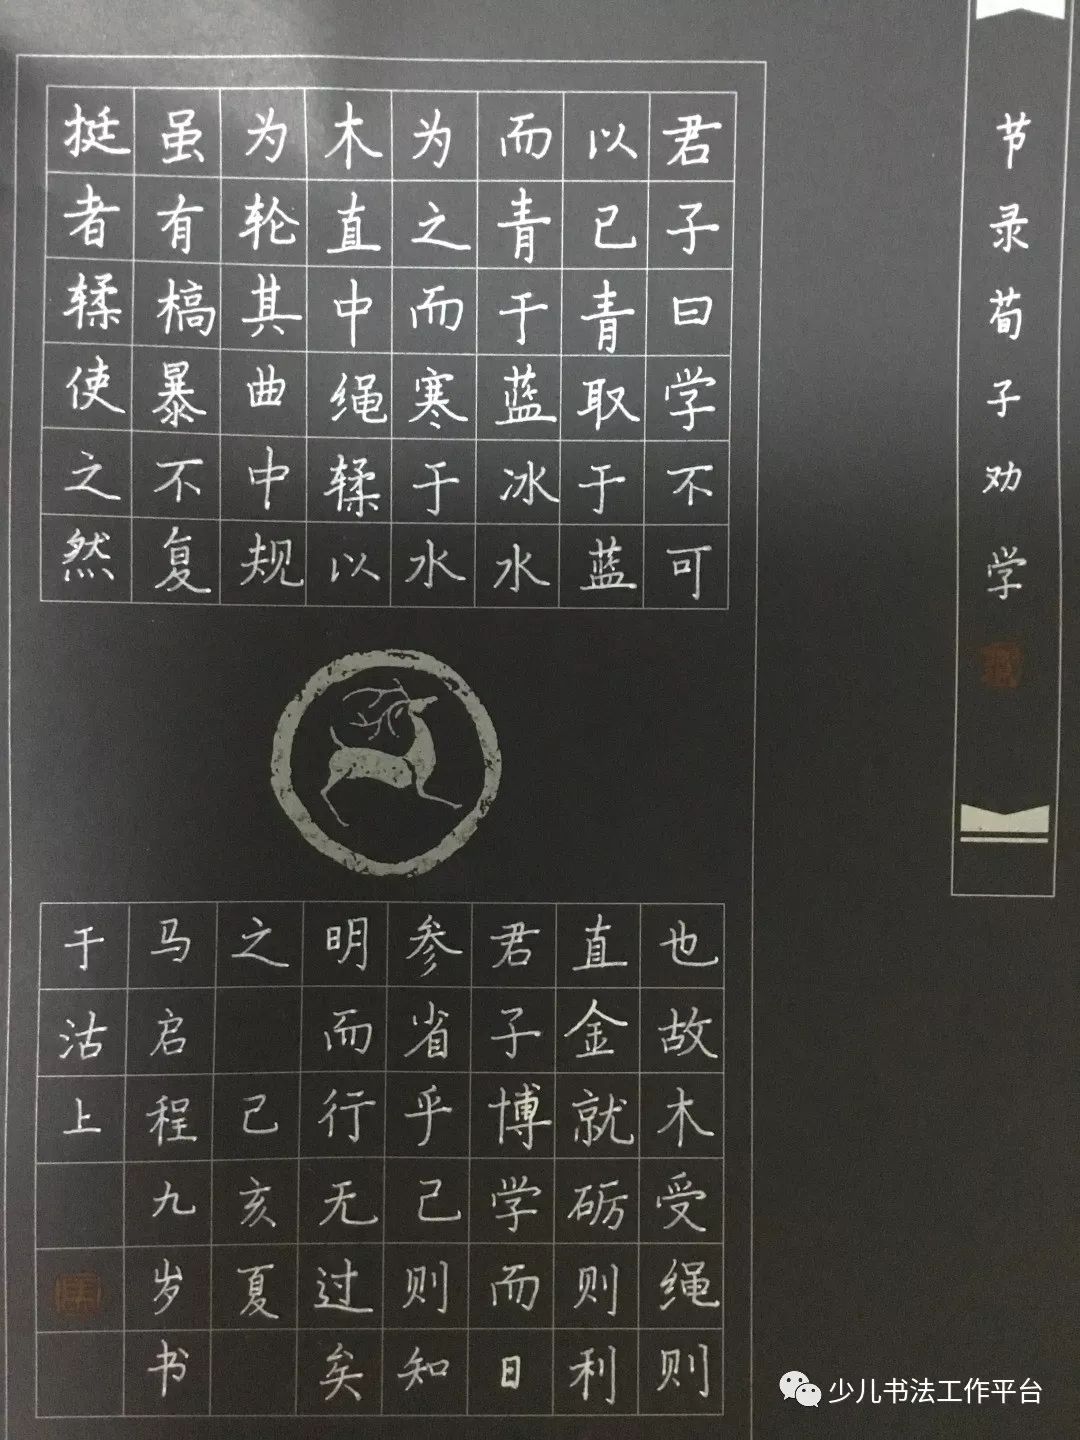 节录荀子劝学
君子曰学不可
以已青取于蓝
而青于蓝冰水
为之而寒于水
木直中绳𫐓以
为轮其曲中规
虽有槁暴不复
挺者𫐓使之然
也故木受绳则
直金就砺则利
君子博学而日
参省乎己则知
明而行无过矣
之 己亥夏
马启程九岁书
于沽上
少儿书法工作平台